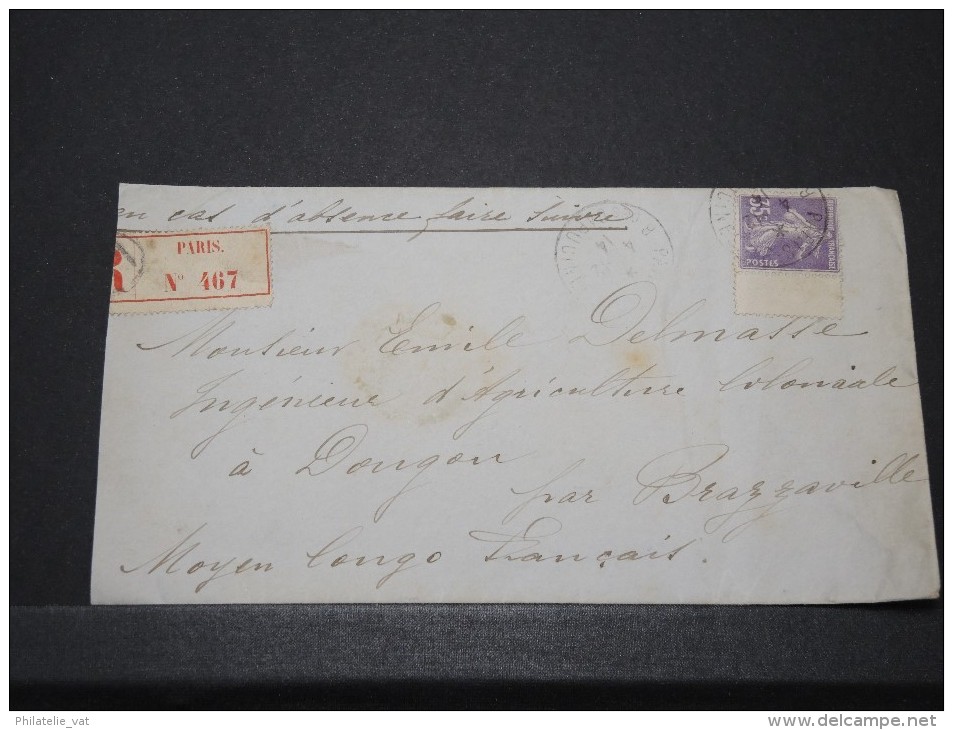 en cas d'absence faire suivre
PARIS.
R
N° 467
35
REPUBLIQUE FRANÇAISE
POSTES
Monsieur Emile Delmasse
Ingénieur d'Agriculture Coloniale
à Dongou
par Brazzaville
Moyen Congo Français.
Philatelie_vat
www.delcampe.net